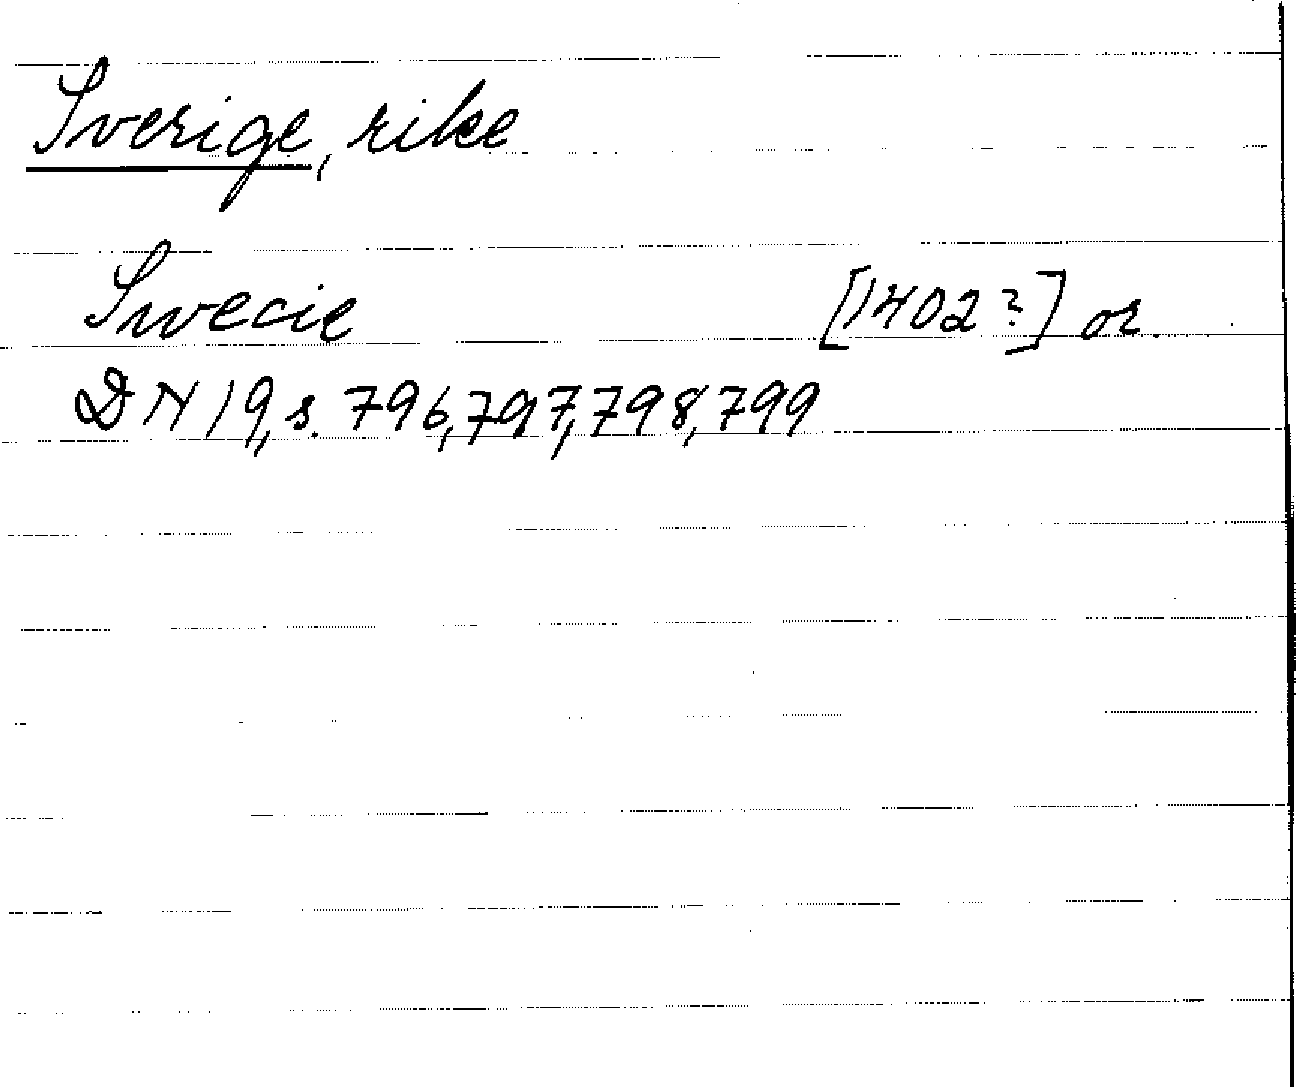 Sverige, rike
Swecie [1402?] or.
DN 19, s. 796, 797, 798, 799